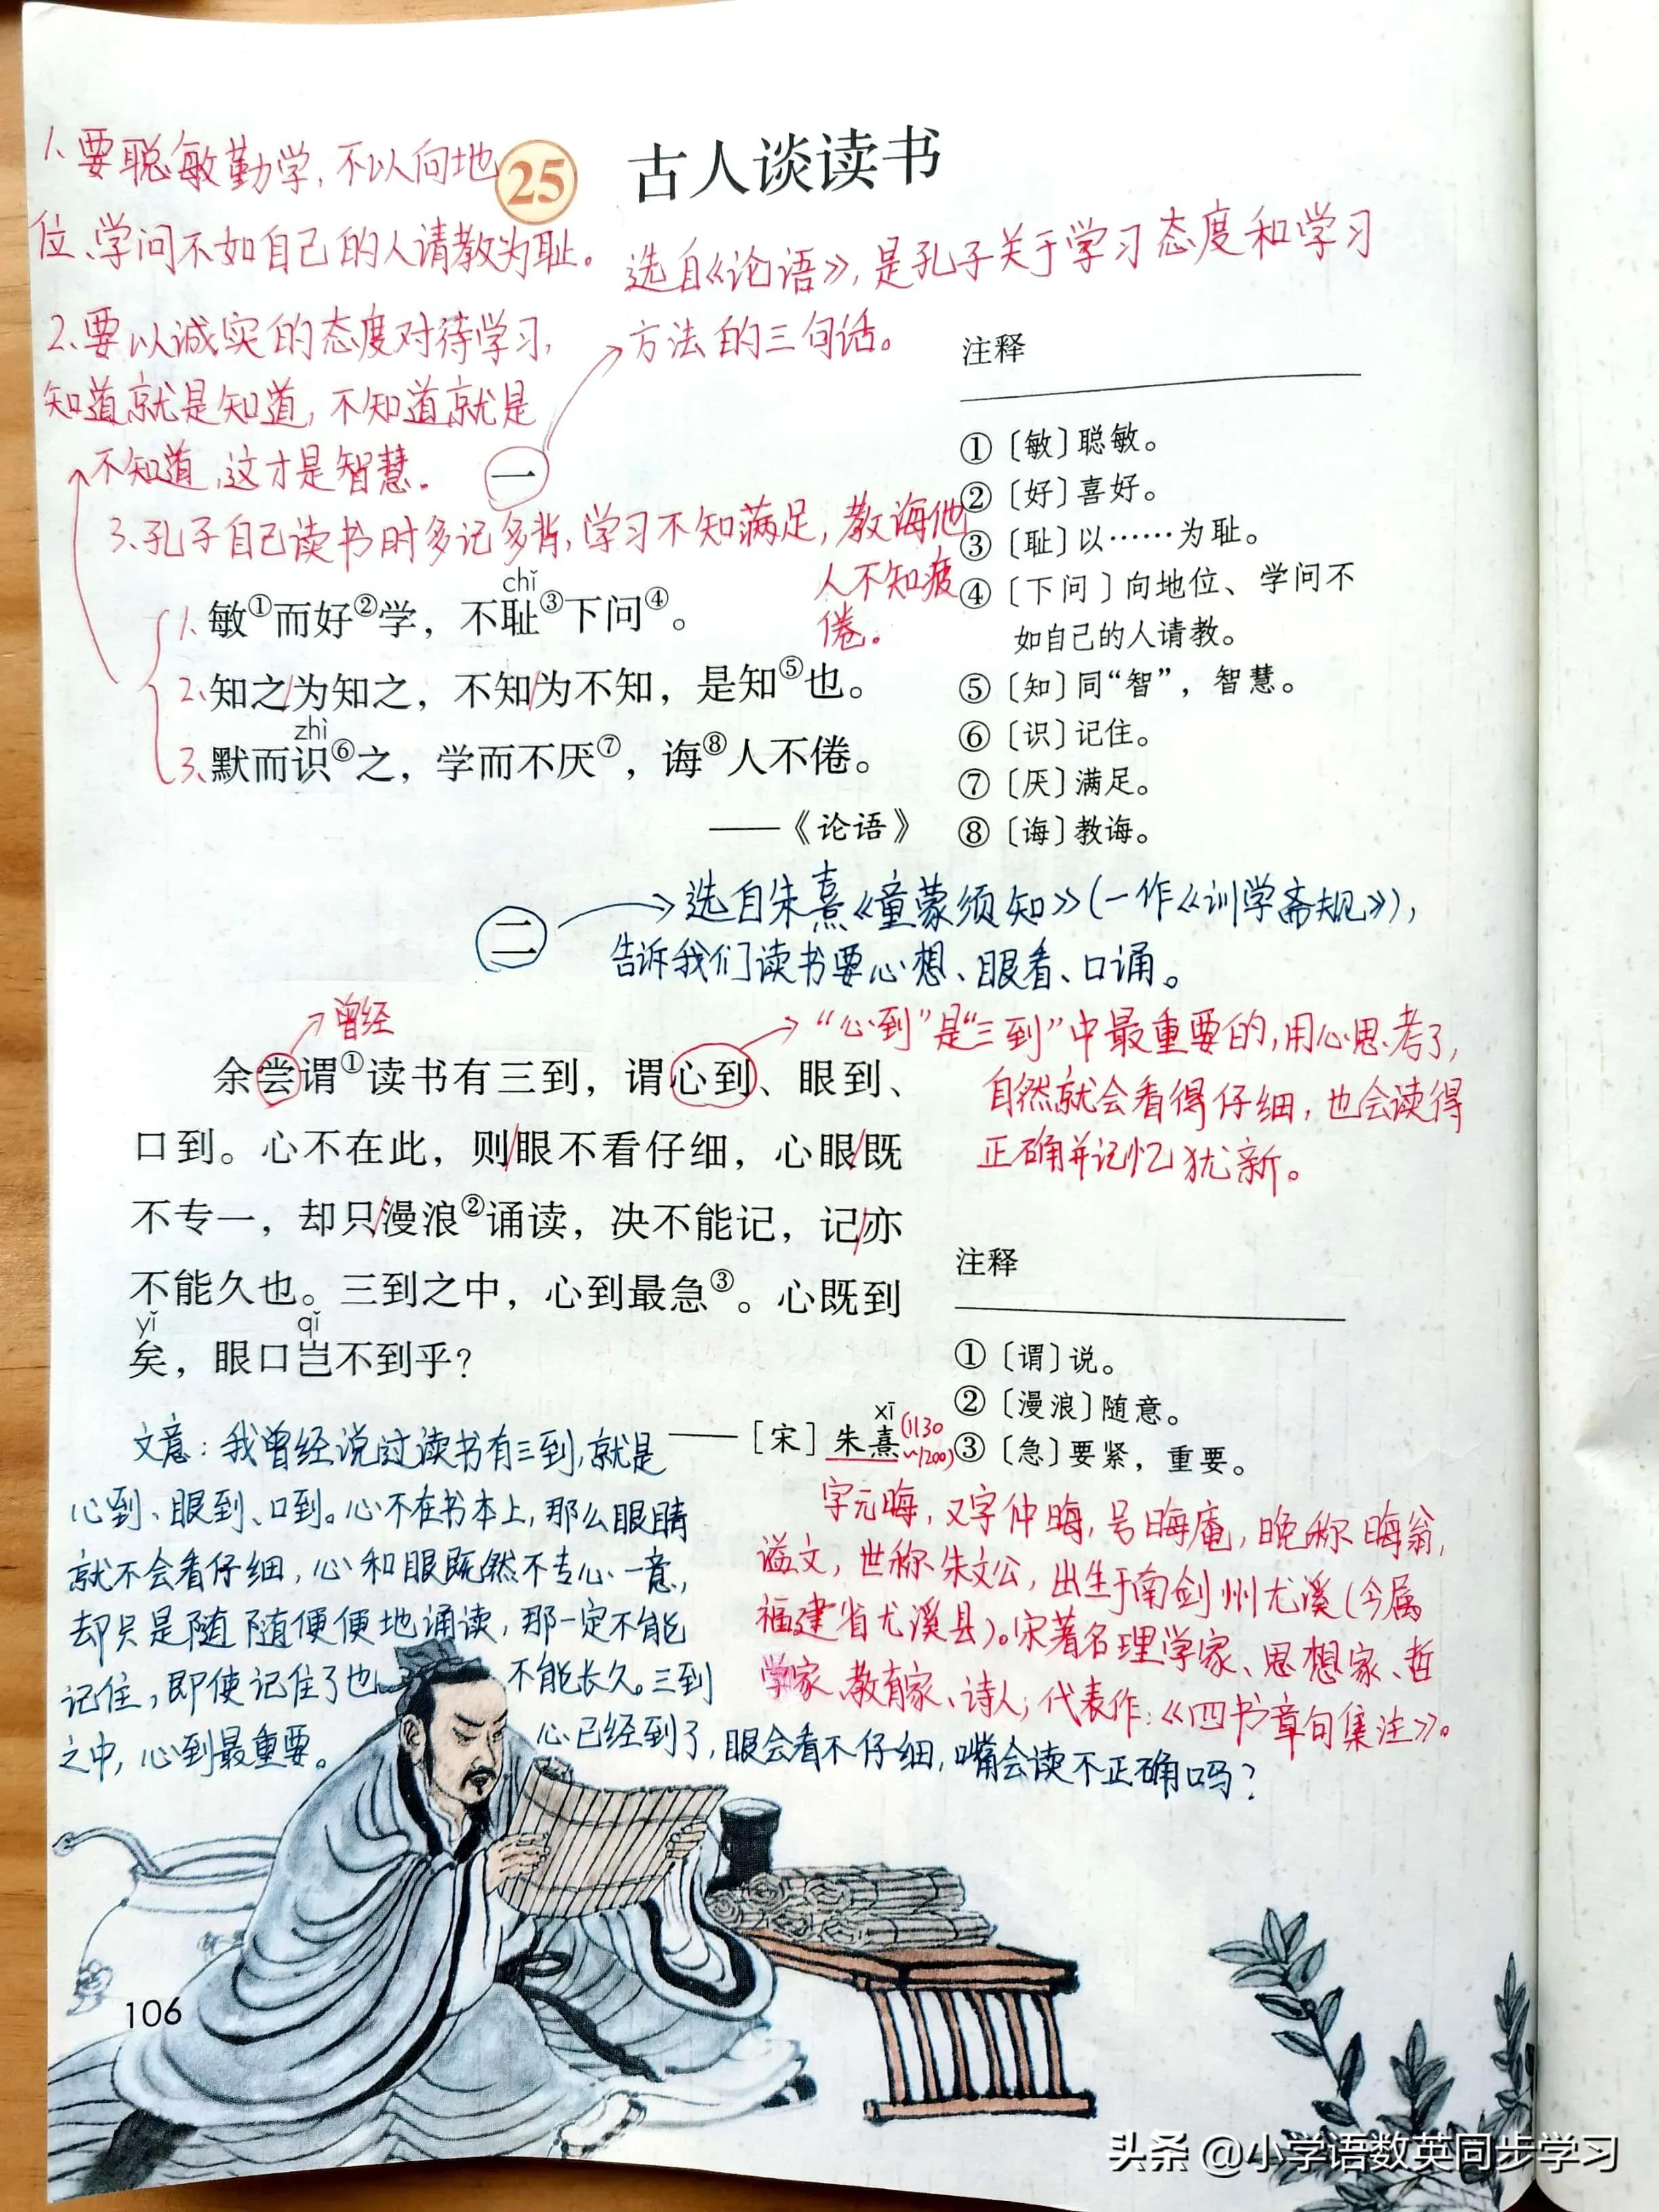 1、要聪敏勤学，不以向地
位、学问不如自己的人请教为耻。
25 古人谈读书
选自《论语》，是孔子关于学习态度和学习
方法的三句话。
2、要以诚实的态度对待学习，
知道就是知道，不知道就是
不知道，这才是智慧。
一
3、孔子自己读书时多记多背，学习不知满足，教诲他
人不知疲
倦。
chǐ
1、敏①而好②学，不耻③下问④。
2、知之/为知之，不知/为不知，是知⑤也。
zhì
3、默而识⑥之，学而不厌⑦，诲⑧人不倦。
——《论语》
注释
①〔敏〕聪敏。
②〔好〕喜好。
③〔耻〕以……为耻。
④〔下问〕向地位、学问不
如自己的人请教。
⑤〔知〕同“智”，智慧。
⑥〔识〕记住。
⑦〔厌〕满足。
⑧〔诲〕教诲。
二
选自朱熹《童蒙须知》（一作《训学斋规》），
告诉我们读书要心想、眼看、口诵。
曾经
“心到”是“三到”中最重要的，用心思考了，
自然就会看得仔细，也会读得
正确并记忆犹新。
余尝谓①读书有三到，谓心到、眼到、
口到。心不在此，则/眼不看仔细，心眼/既
不专一，却只/漫浪②诵读，决不能记，记/亦
不能久也。三到之中，心到最急③。心既到
yǐ qǐ
矣，眼口岂不到乎？
xī
——［宋］朱熹(1130
~1200)
注释
①〔谓〕说。
②〔漫浪〕随意。
③〔急〕要紧，重要。
文意：我曾经说过读书有三到，就是
心到、眼到、口到。心不在书本上，那么眼睛
就不会看仔细，心和眼既然不专心一意，
却只是随随便便地诵读，那一定不能
记住，即使记住了也不能长久。三到
之中，心到最重要。心已经到了，眼会看不仔细，嘴会读不正确吗？
字元晦，又字仲晦，号晦庵，晚称晦翁，
谥文，世称朱文公，出生于南剑州尤溪（今属
福建省尤溪县）。宋著名理学家、思想家、哲
学家、教育家、诗人；代表作：《四书章句集注》。
106
头条 @小学语数英同步学习